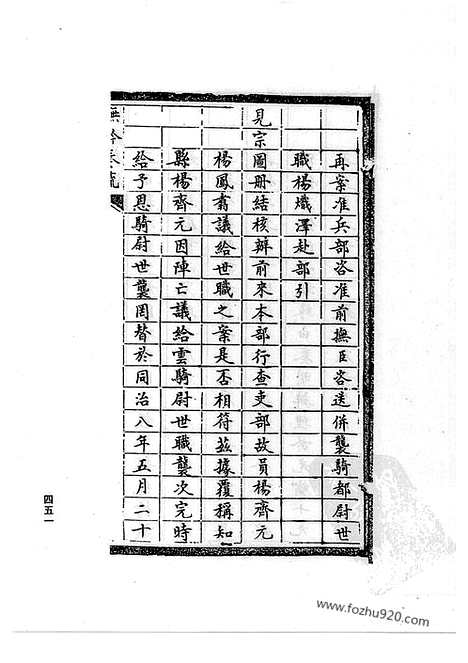 再案准兵部咨准前撫臣咨送併襲騎都尉世
職楊熾澤赴部引
見宗圖册結核辦前來本部行查吏部故員楊齊元
楊鳳翥議給世職之案是否相符茲據覆稱知
縣楊齊元因陣亡議給雲騎尉世職襲次完時
給予恩騎尉世襲罔替於同治八年五月二十
撫黔奏疏
四五一
www.fozhu920.com